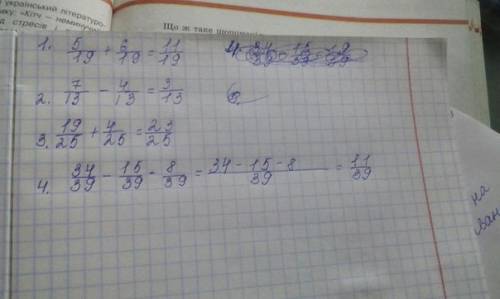 український літературо-
«Кітч — неминуч
стресів і
Що ж таке
1. 5/19 + 6/19 = 11/19
2. 7/13 - 4/13 = 3/13
3. 19/25 + 4/25 = 23/25
4. 34/39 - 15/39 - 8/39 = 34 - 15 - 8/39 = 11/39
на